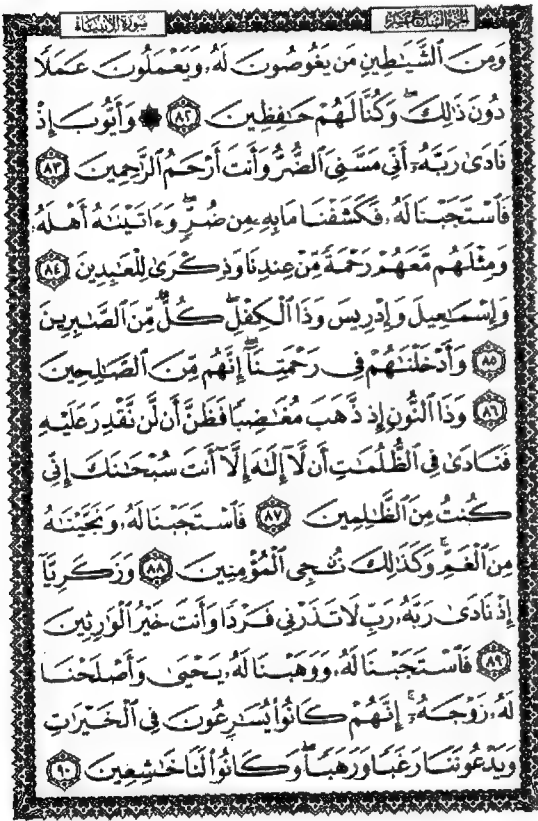 سُورَةُ الأَنبِيَاءِ
الجُزْءُ السَّابِعَ عَشَرَ
وَمِنَ ٱلشَّيَٰطِينِ مَن يَغُوصُونَ لَهُۥ وَيَعْمَلُونَ عَمَلًا
دُونَ ذَٰلِكَ ۖ وَكُنَّا لَهُمْ حَٰفِظِينَ ٨٢ ۞ وَأَيُّوبَ إِذْ
نَادَىٰ رَبَّهُۥٓ أَنِّى مَسَّنِىَ ٱلضُّرُّ وَأَنتَ أَرْحَمُ ٱلرَّٰحِمِينَ ٨٣
فَٱسْتَجَبْنَا لَهُۥ فَكَشَفْنَا مَا بِهِۦ مِن ضُرٍّ ۖ وَءَاتَيْنَٰهُ أَهْلَهُۥ
وَمِثْلَهُم مَّعَهُمْ رَحْمَةً مِّنْ عِندِنَا وَذِكْرَىٰ لِلْعَٰبِدِينَ ٨٤
وَإِسْمَٰعِيلَ وَإِدْرِيسَ وَذَا ٱلْكِفْلِ ۖ كُلٌّ مِّنَ ٱلصَّٰبِرِينَ
٨٥ وَأَدْخَلْنَٰهُمْ فِى رَحْمَتِنَآ ۖ إِنَّهُم مِّنَ ٱلصَّٰلِحِينَ
٨٦ وَذَا ٱلنُّونِ إِذ ذَّهَبَ مُغَٰضِبًا فَظَنَّ أَن لَّن نَّقْدِرَ عَلَيْهِ
فَنَادَىٰ فِى ٱلظُّلُمَٰتِ أَن لَّآ إِلَٰهَ إِلَّآ أَنتَ سُبْحَٰنَكَ إِنِّى
كُنتُ مِنَ ٱلظَّٰلِمِينَ ٨٧ فَٱسْتَجَبْنَا لَهُۥ وَنَجَّيْنَٰهُ
مِنَ ٱلْغَمِّ ۚ وَكَذَٰلِكَ نُۨجِى ٱلْمُؤْمِنِينَ ٨٨ وَزَكَرِيَّآ
إِذْ نَادَىٰ رَبَّهُۥ رَبِّ لَا تَذَرْنِى فَرْدًا وَأَنتَ خَيْرُ ٱلْوَٰرِثِينَ
٨٩ فَٱسْتَجَبْنَا لَهُۥ وَوَهَبْنَا لَهُۥ يَحْيَىٰ وَأَصْلَحْنَا
لَهُۥ زَوْجَهُۥٓ ۚ إِنَّهُمْ كَانُوا۟ يُسَٰرِعُونَ فِى ٱلْخَيْرَٰتِ
وَيَدْعُونَنَا رَغَبًا وَرَهَبًا ۖ وَكَانُوا۟ لَنَا خَٰشِعِينَ ٩٠